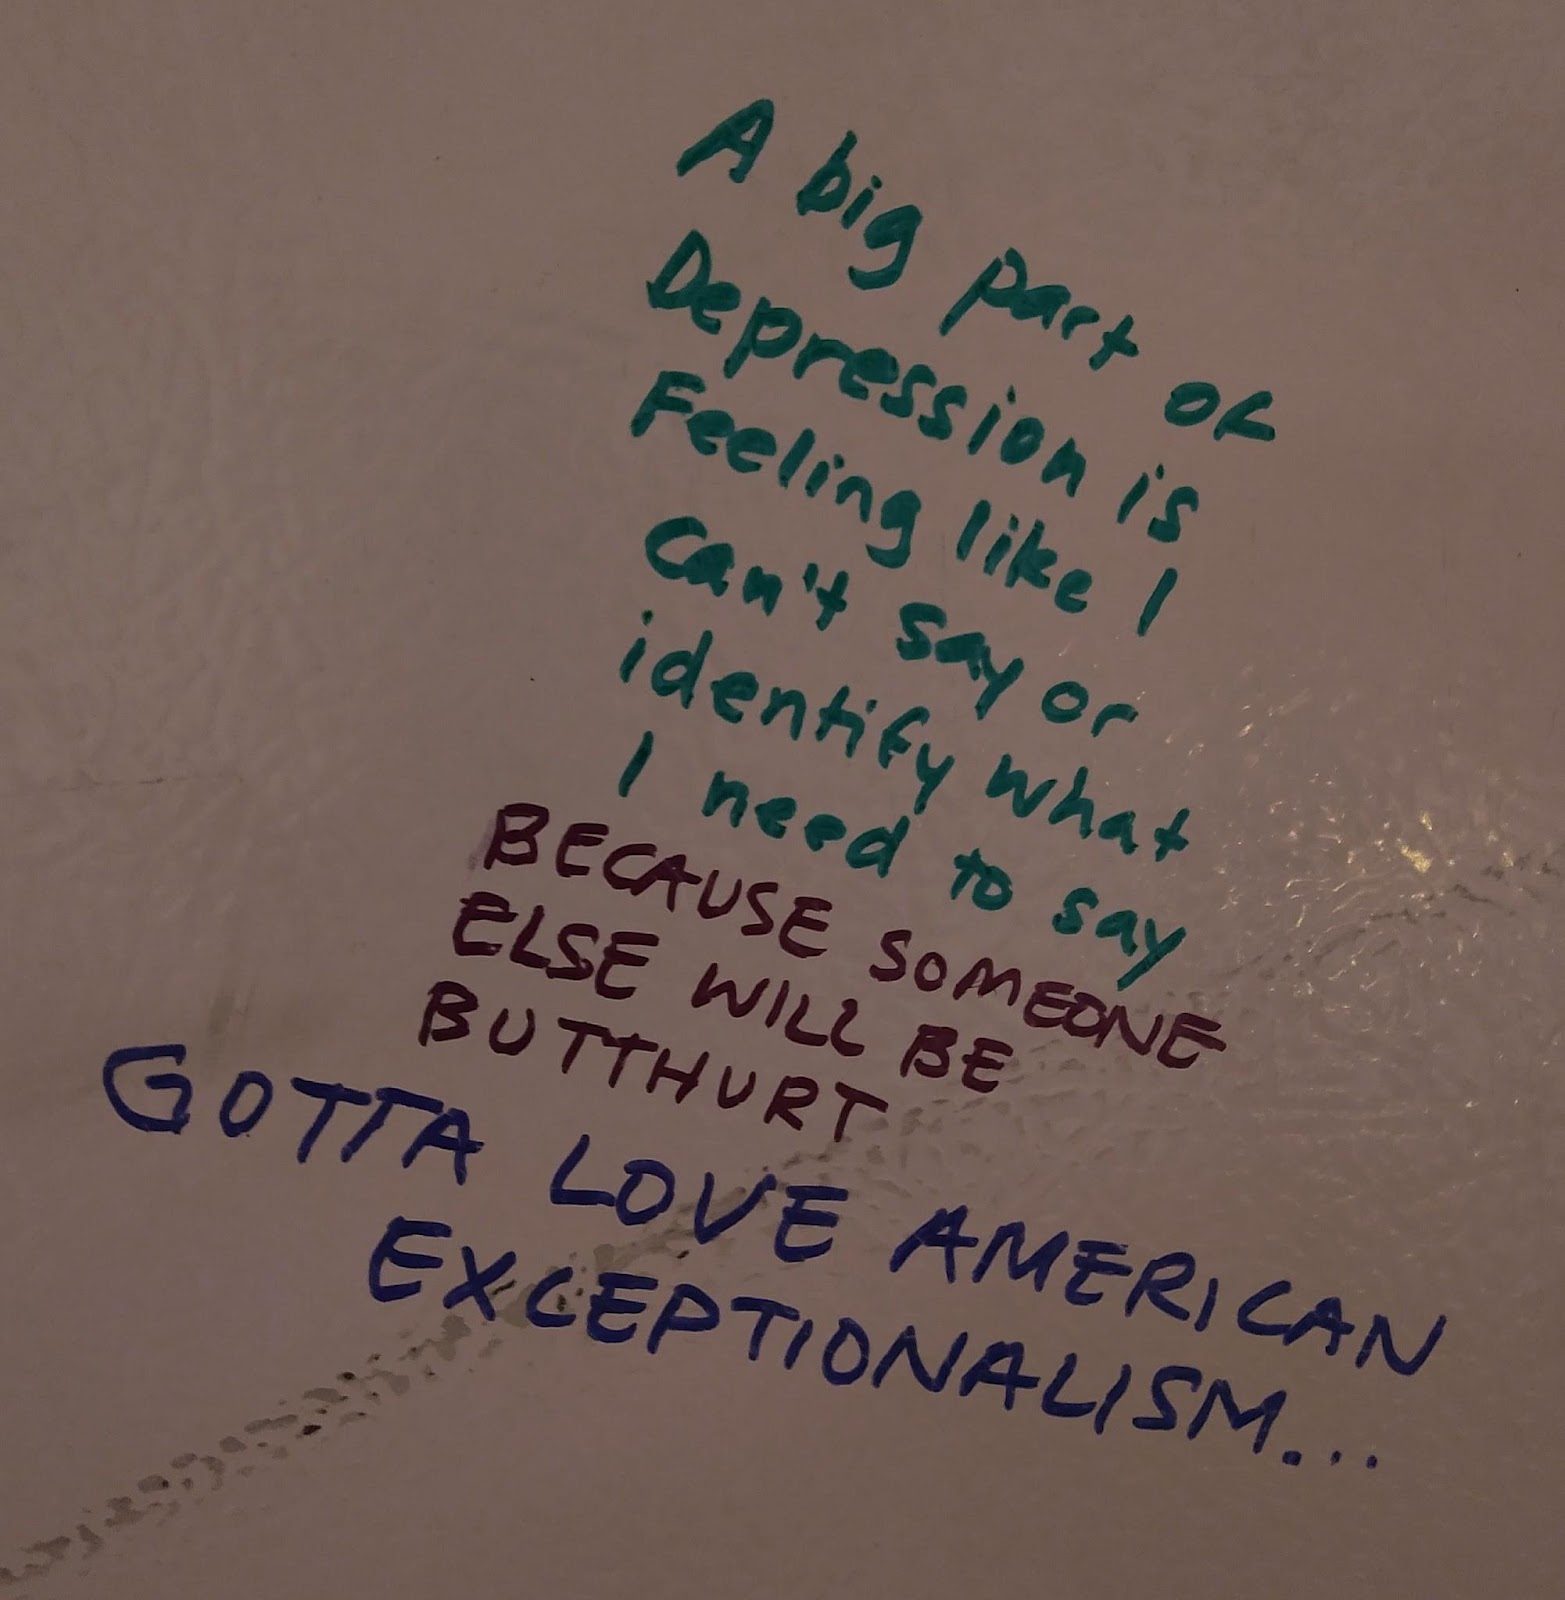 A big part of
Depression is
Feeling like I
can't say or
identify what
I need to say
BECAUSE SOMEONE
ELSE WILL BE
BUTTHURT
GOTTA LOVE AMERICAN
EXCEPTIONALISM...